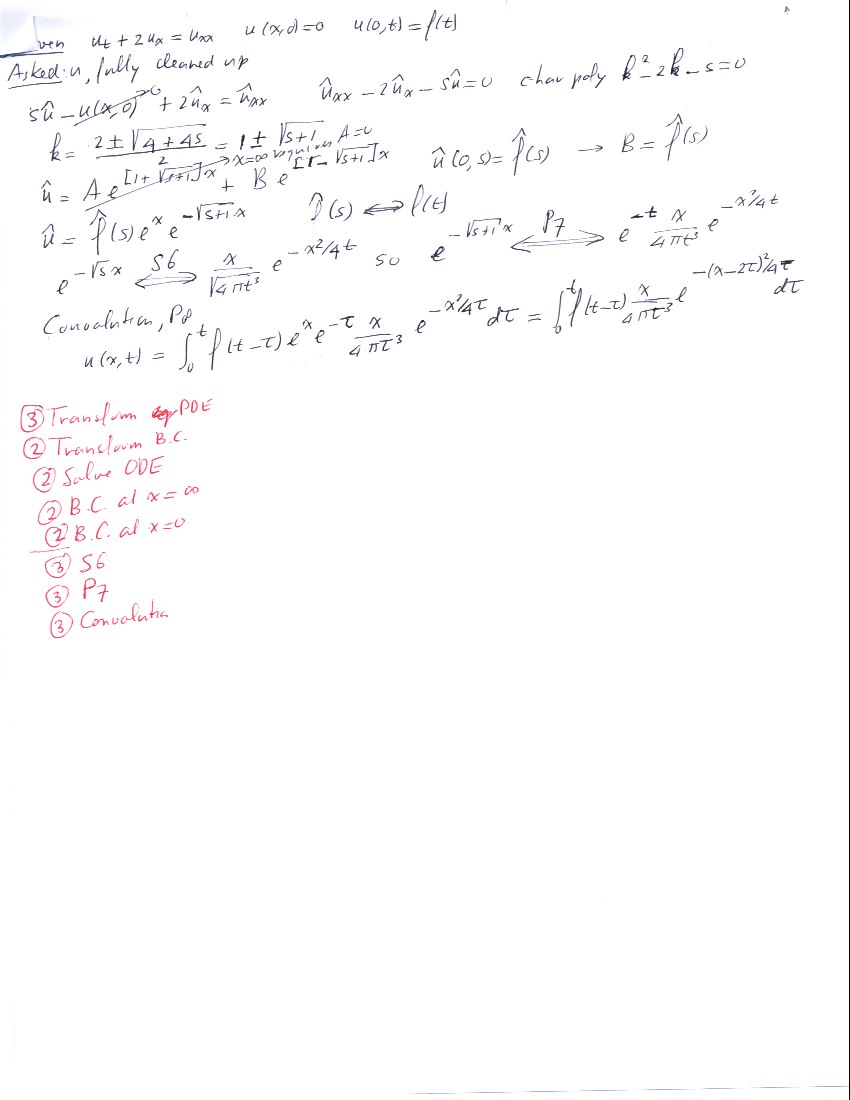 ven u_t + 2u_x = u_xx u(x,0)=0 u(0,t)=f(t)
Asked: u, fully cleaned up
sû - u(x,0) →0 + 2û_x = û_xx û_xx - 2û_x - sû = 0 char poly k² - 2k - s = 0
k = (2 ± √(4+4s))/2 = 1 ± √(s+1)
û = A e^{[1+√(s+1)]x} + B e^{[1-√(s+1)]x} x=∞ requires A=0 û(0,s) = f̂(s) → B = f̂(s)
û = f̂(s) e^x e^{-√(s+1) x} f̂(s) ⟷ f(t)
e^{-√s x} ⟺ S6 x/√(4πt³) e^{-x²/4t} so e^{-√(s+1) x} ⟺ P7 e^{-t} x/(4πt³) e^{-x²/4t}
Convolution, P8
u(x,t) = ∫₀^t f(t-τ) e^x e^{-τ} x/(4πτ³) e^{-x²/4τ} dτ = ∫₀^t f(t-τ) x/(4πτ³) e^{-(x-2τ)²/4τ} dτ
③ Transform PDE
② Transform B.C.
② Solve ODE
② B.C. at x = ∞
② B.C. at x=0
③ S6
③ P7
③ Convolutio